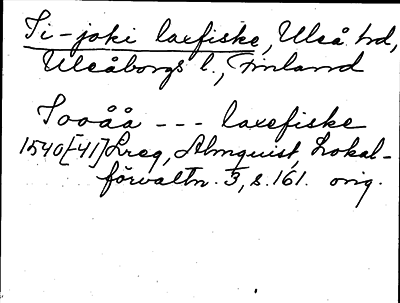 Ii-joki laxfiske, Uleå hd,
Uleåborgs l., Finland
Iooåå --- laxefiske
1540[-41] Lreg, Almquist, Lokal-
förvaltn. 3, s. 161. orig.